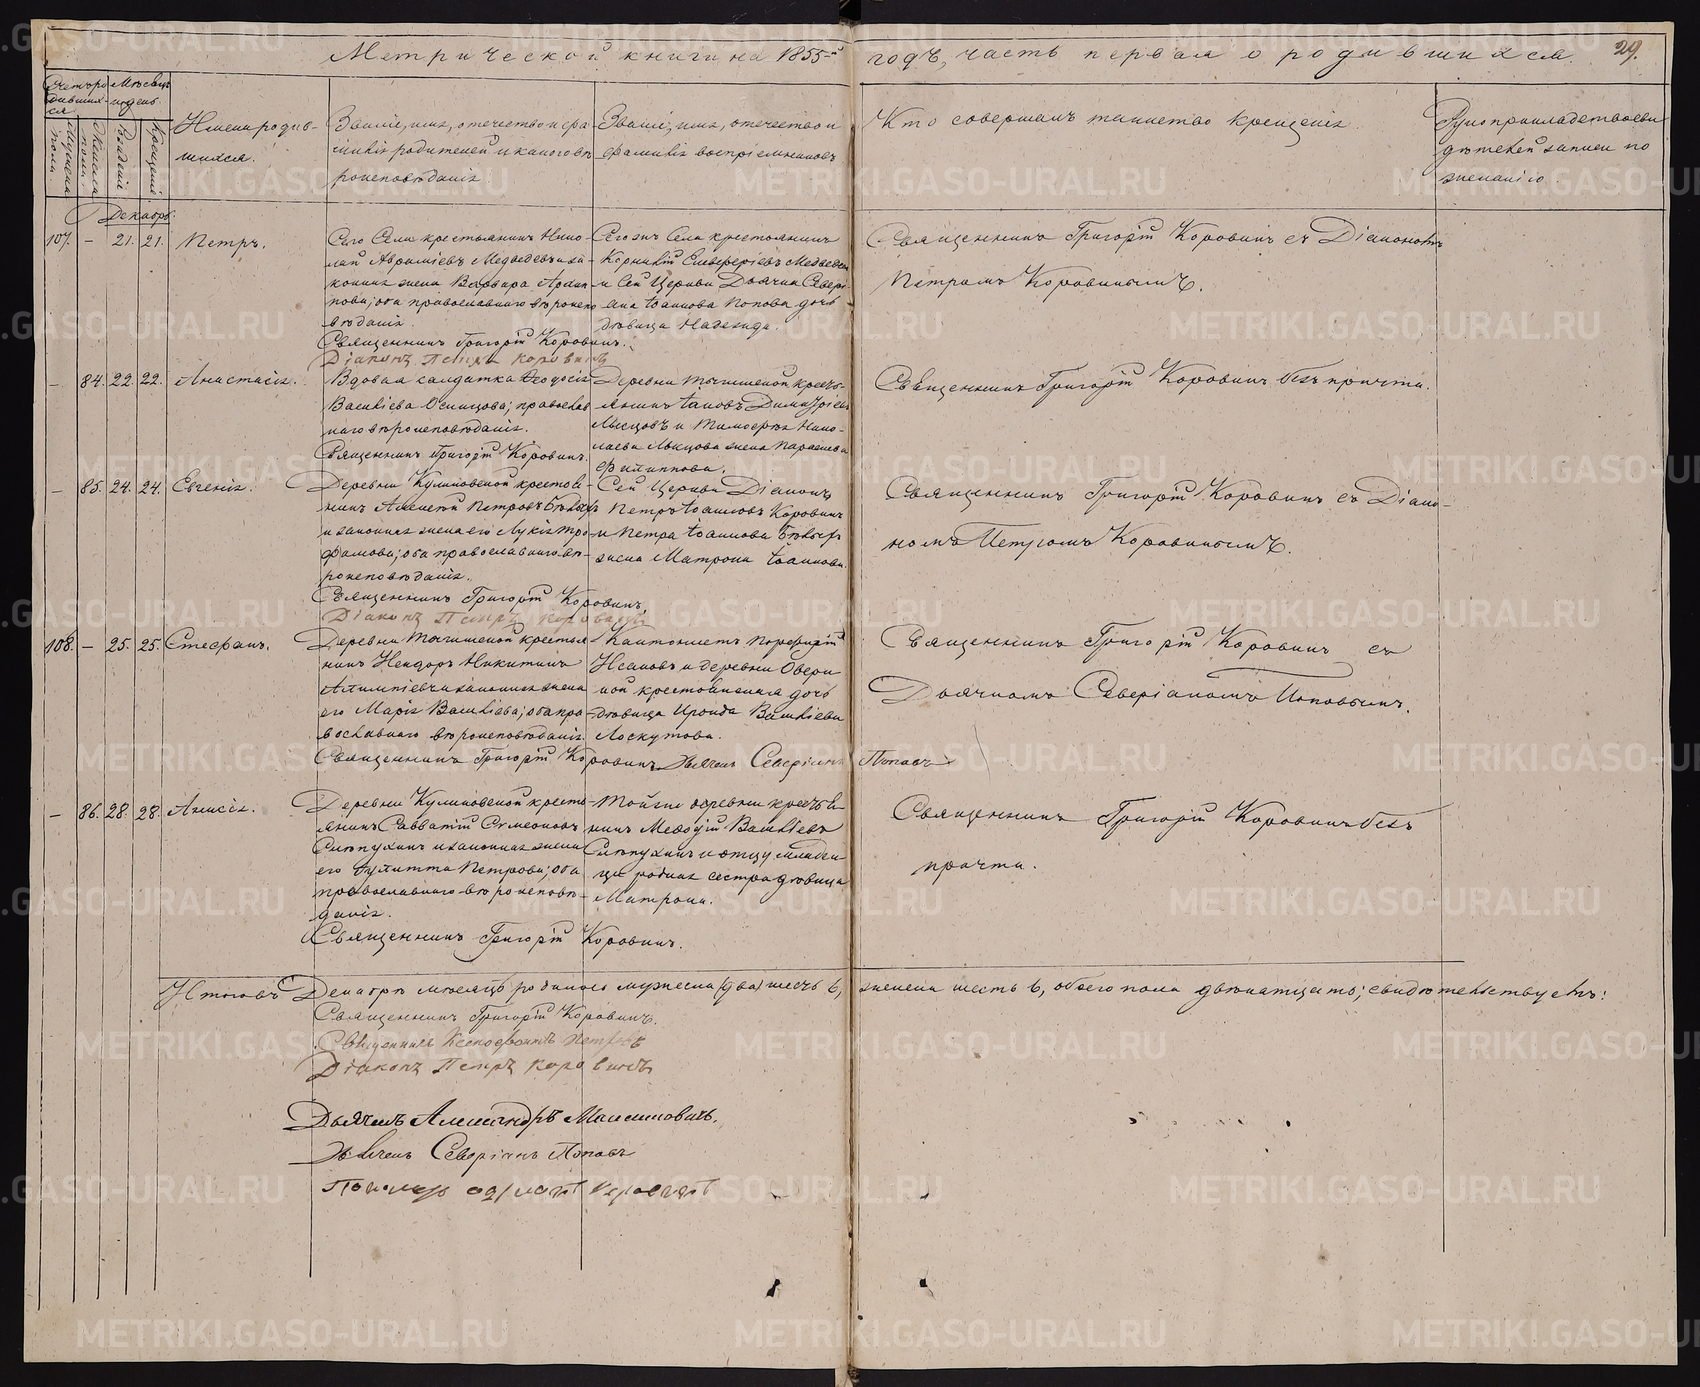 Метрической книги на 1855й годъ, часть первая о родившихся.
29.
Счетъ родившихся
Мѣсяцъ и день
Мужеска пола
Женска пола
Рожденія
Крещенія
Имена родившихся.
Званіе, имя, отечество и фамилія родителей и какого вѣроисповѣданія
Званіе, имя, отечество и фамилія воспріемниковъ
Кто совершалъ таинство крещенія
Рукоприкладство свидѣтелей записи по желанію
Декабрь
107. – 21. 21. Петръ.
Сего Села крестьянинъ Нико-
лай Аврамиевъ Медведевъ и за-
конная жена Варвара
пова; оба православнаго вѣроиспо-
вѣданія.
Священникъ Григорій Коровинъ.
Діаконъ Петръ Коровинъ
Сегожъ Села крестьянинъ
Корнилій Елеверіевъ Медведевъ
и Сей Церкви Дьячка Севері-
ана Іоаннова Попова дочь
дѣвица Надежда.
Священникъ Григорій Коровинъ съ Діакономъ
Петромъ Коровинымъ.
– 84. 22. 22. Анастасія.
Вдовая салдатка Ѳеодосія
Василіева Осинцова; православ-
наго вѣроисповѣданія.
Священникъ Григорій Коровинъ.
Деревни крестья-
янинъ Іаковъ Димитріевъ
Мысцовъ и Тимоѳея Нико-
лаева жена Параскева
Филиппова.
Священникъ Григорій Коровинъ безъ причта.
– 85. 24. 24. Евгенія.
Деревни Куликовской крестья-
нинъ Алексѣй Петровъ
и законная жена его Лукія Тро-
фимова; оба православнаго вѣ-
роисповѣданія.
Священникъ Григорій Коровинъ.
Діаконъ Петръ Коровинъ
Сей Церкви Діаконъ
Петръ Іоанновъ Коровинъ
и Петра Іоаннова
жена Матрона Іоаннова.
Священникъ Григорій Коровинъ съ Діако-
номъ Петромъ Коровинымъ.
108. – 25. 25. Стефанъ.
Деревни крестья-
нинъ Исидоръ Никитинъ
и законная жена
его Марія Василіева; оба пра-
вославнаго вѣроисповѣданія.
Священникъ Григорій Коровинъ Дьячекъ Северіанъ Поповъ
Кантонистъ Порфирій
Исаковъ и деревни
крестьянина дочь
дѣвица Ироида Василіева
Лоскутова.
Священникъ Григорій Коровинъ съ
Дьячкомъ Северіаномъ Поповымъ.
– 86. 28. 28. Анисія.
Деревни Куликовской кресть-
янинъ Савватій Симеоновъ
Слѣпухинъ и законная жена
его Іулитта Петрова; оба
православнаго вѣроисповѣ-
данія.
Священникъ Григорій Коровинъ.
Той же деревни крестья-
нинъ Меѳодій Василіевъ
Слѣпухинъ и отцу младен-
ца родная сестра дѣвица
Матрона.
Священникъ Григорій Коровинъ безъ
причта.
Итого въ Декабрѣ мѣсяцѣ родилось мужеска шесть 6, женска шесть 6, обоего пола двѣнатцать; свидѣтельствуемъ:
Священникъ Григорій Коровинъ.
Священникъ Ксенофонтъ Петровъ
Діаконъ Петръ Коровинъ
Дьячекъ Александръ Максимовичъ.
Дьячекъ Северіанъ Поповъ